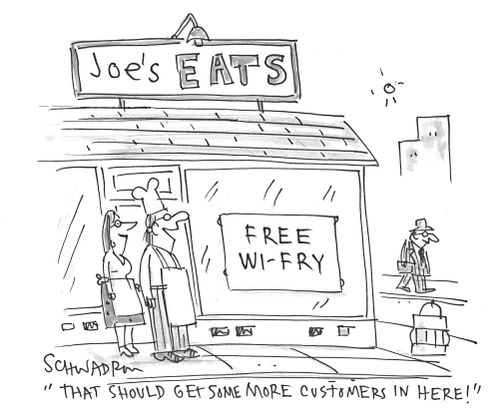 Joe's EATS
FREE
WI-FRY
SCHWADRON
"THAT SHOULD GET SOME MORE CUSTOMERS IN HERE!"